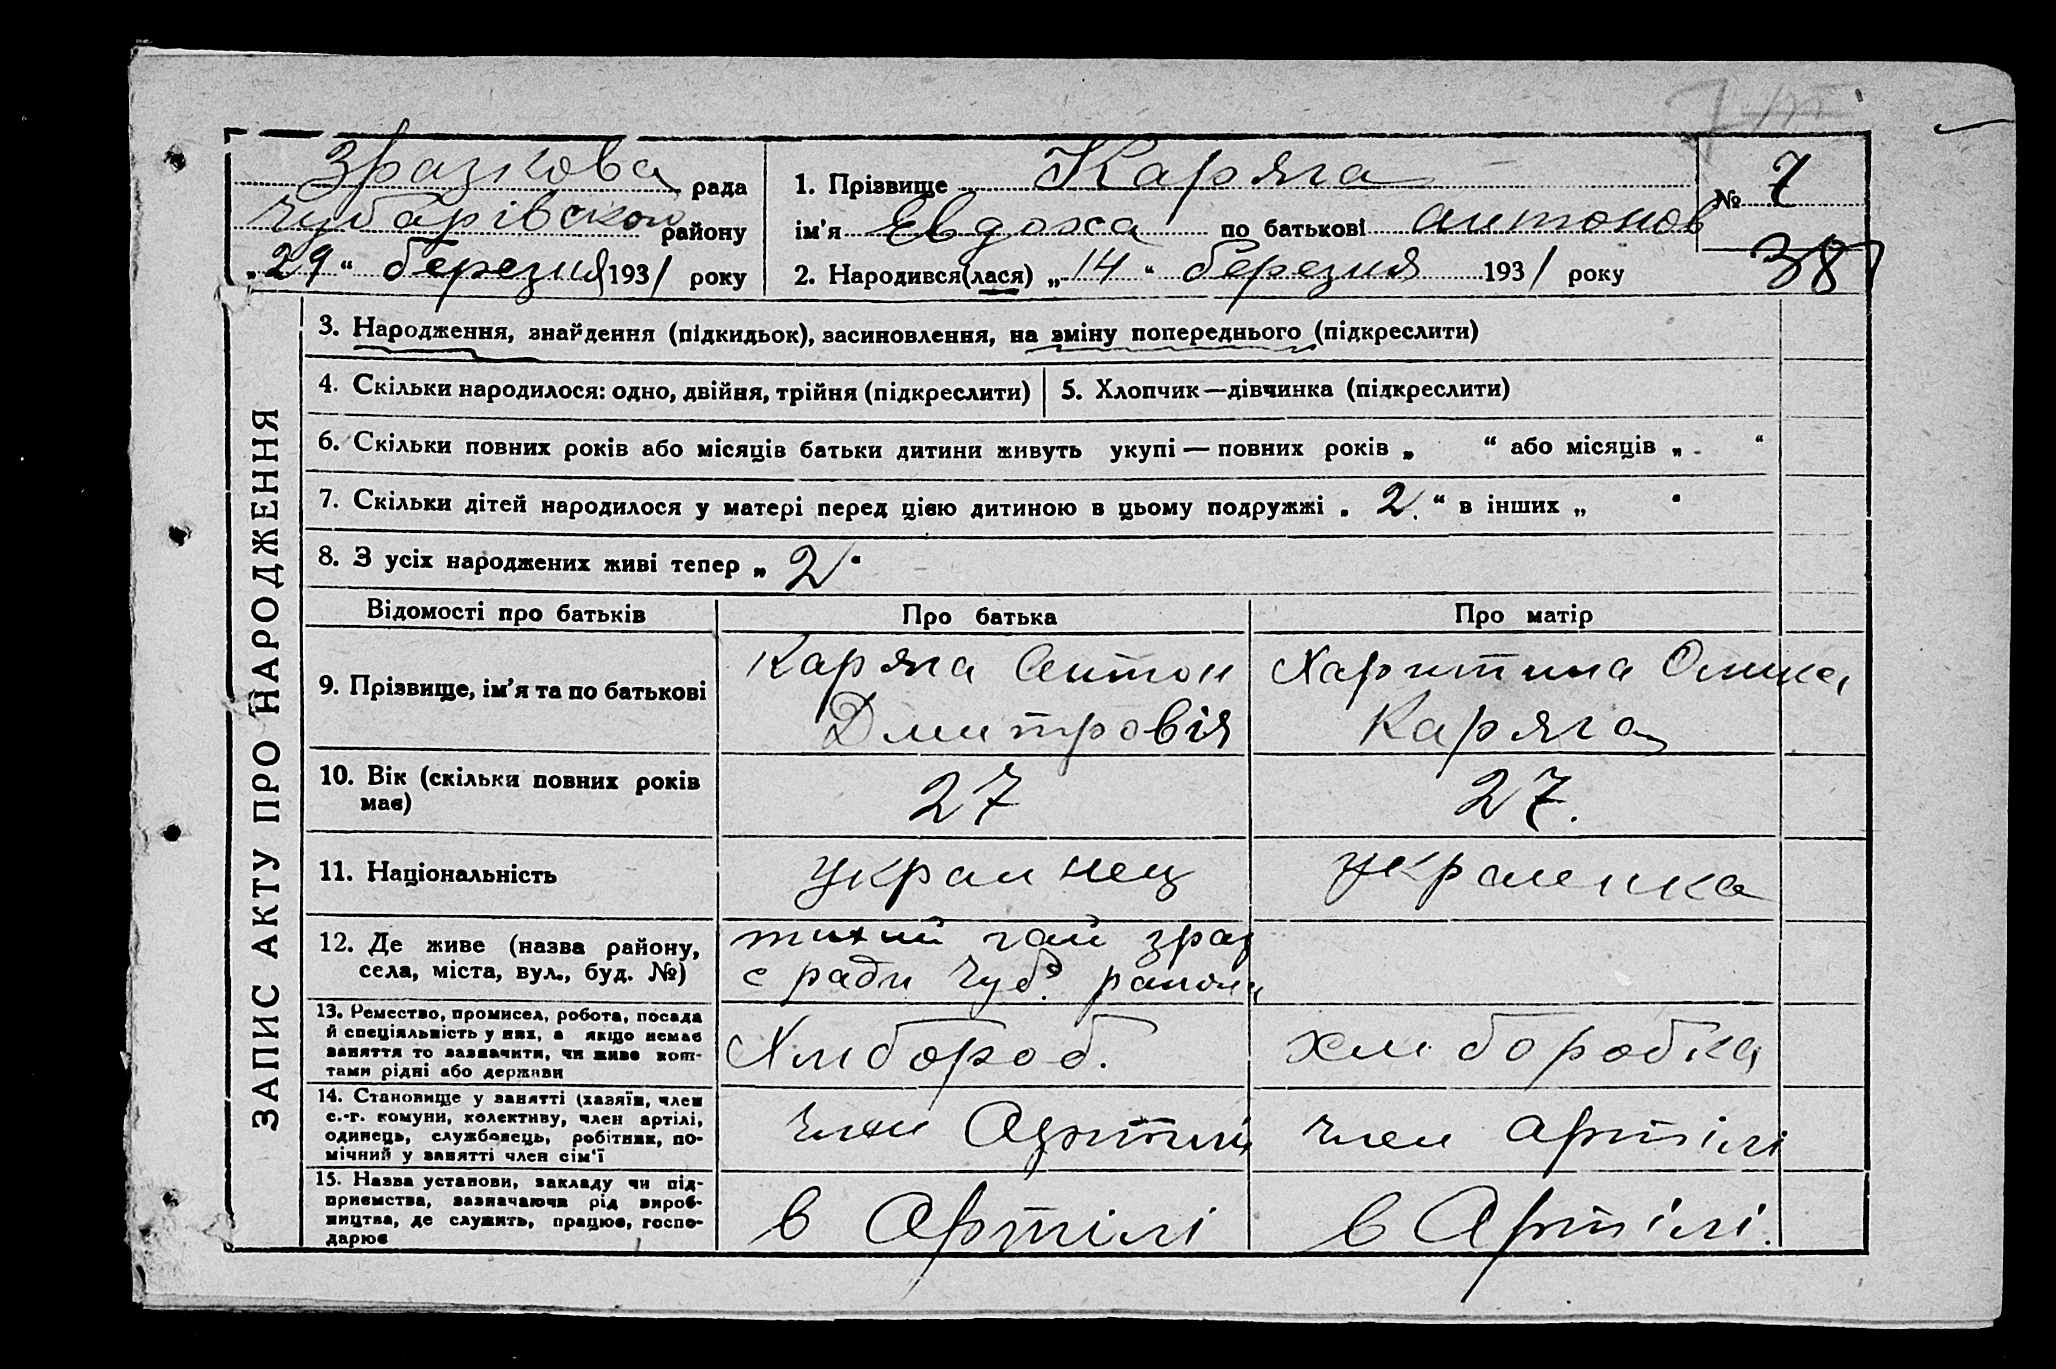 Зразкова рада
Чубарівського району
„29“ березня 1931 року
1. Прізвище Каряга
ім'я Євдоха по батькові антонов
2. Народився(лася) „14“ березня 1931 року
№ 7
38
ЗАПИС АКТУ ПРО НАРОДЖЕННЯ
3. Народження, знайдення (підкидьок), засиновлення, на зміну попереднього (підкреслити)
4. Скільки народилося: одно, двійня, трійня (підкреслити)
5. Хлопчик—дівчинка (підкреслити)
6. Скільки повних років або місяців батьки дитини живуть укупі — повних років „ “ або місяців „ “
7. Скільки дітей народилося у матері перед цією дитиною в цьому подружжі „ 2 “ в інших „ “
8. З усіх народжених живі тепер „ 2 “
Відомості про батьків
Про батька
Про матір
9. Прізвище, ім'я та по батькові
Каряга Антон
Дмитровія
Харитина
Каряга
10. Вік (скільки повних років
має)
27
27.
11. Національність
украинец
украенка
12. Де живе (назва району,
села, міста, вул., буд. №)
тихий гай зраз
с ради Чуб. района
13. Ремество, промисел, робота, посада
й спеціяльність у них, а якщо немає
заняття то зазначити, чи живе кош-
тами рідні або держави
Хлибороб.
хлиборобка
14. Становище у занятті (хазяїн, член
с.-г. комуни, колективу, член артілі,
одинець, службовець, робітник, по-
мічний у занятті член сім'ї
член Артили
член артілі
15. Назва установи, закладу чи під-
приємства, зазначаючи рід вироб-
ництва, де служить, працює, госпо-
дарює
в Артілі
в Артілі.